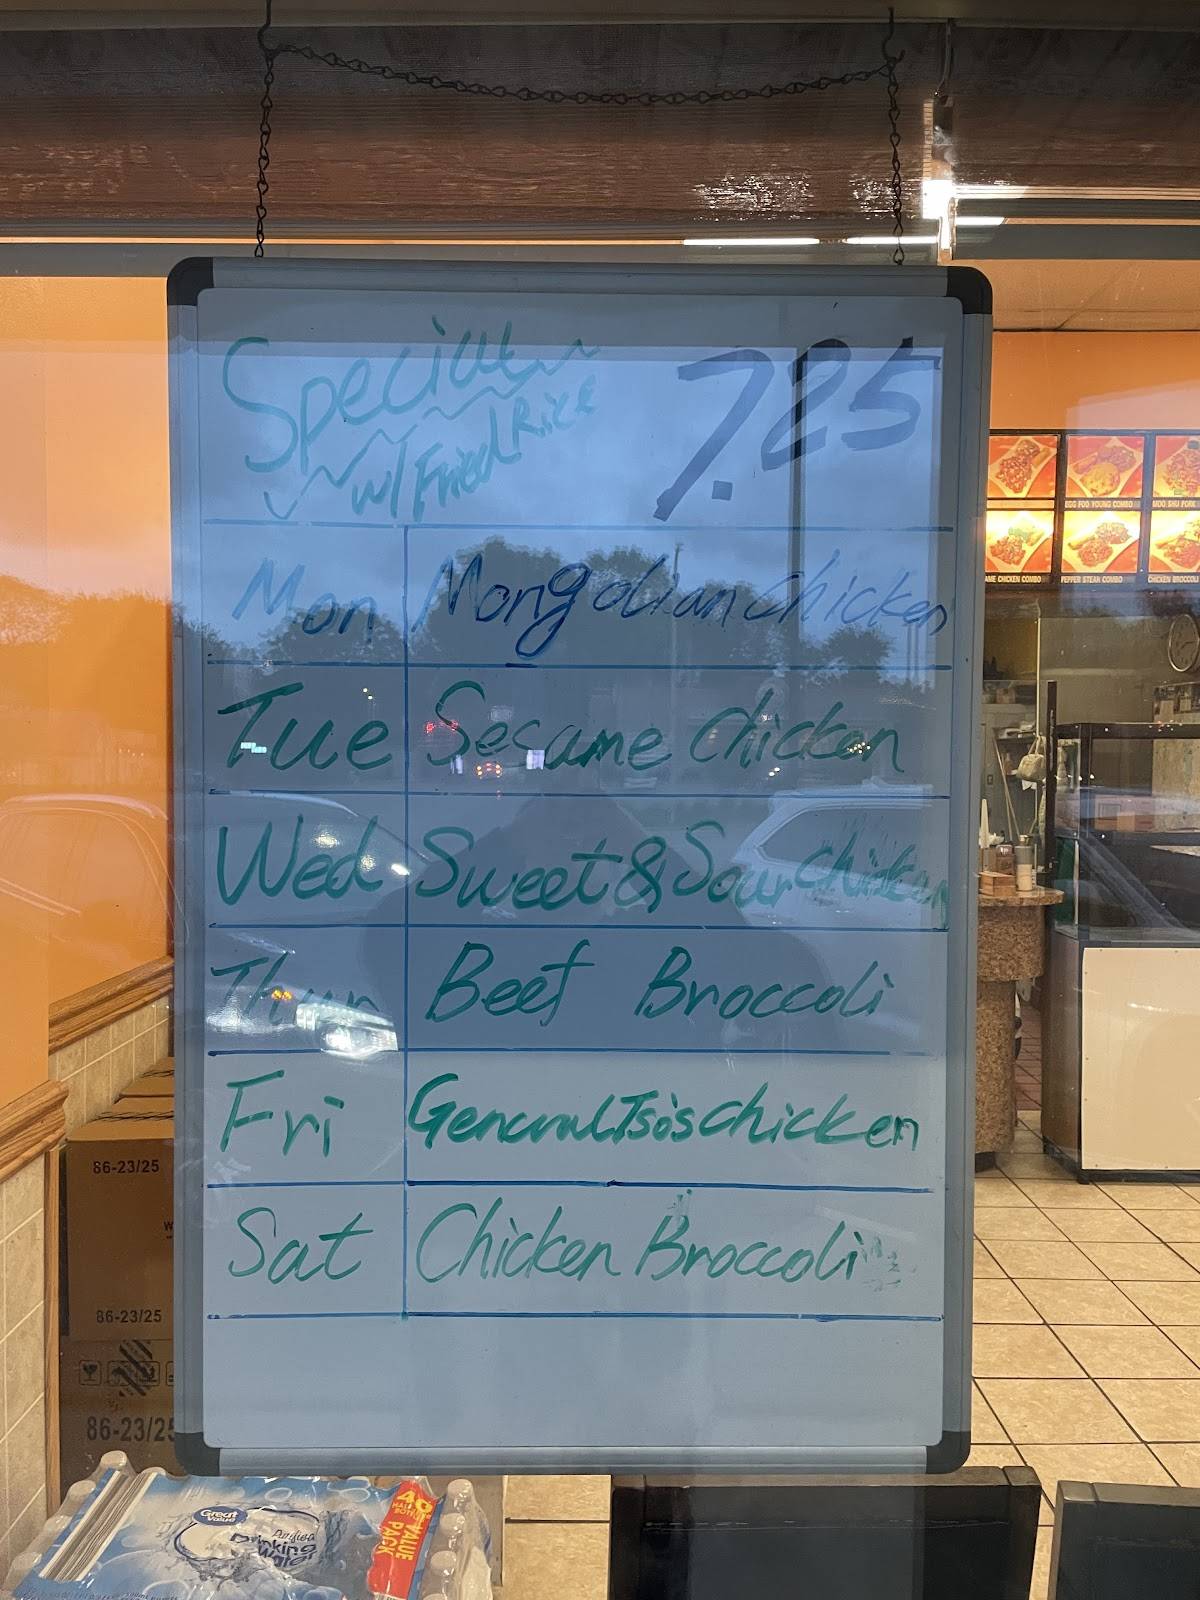 Special
w/ Fried Rice
7.25
Mon Mongolian chicken
Tue Sesame chicken
Wed Sweet & Sour chicken
Thur Beef Broccoli
Fri General Tso's chicken
Sat Chicken Broccoli
EGG FOO YOUNG COMBO
MOO SHU PORK
AME CHICKEN COMBO
PEPPER STEAK COMBO
CHICKEN BROCCOLI
86-23/25
86-23/25
86-23/25
Great Value
Purified
Drinking
Water
40
HALF LITER BOTTLES
VALUE
PACK